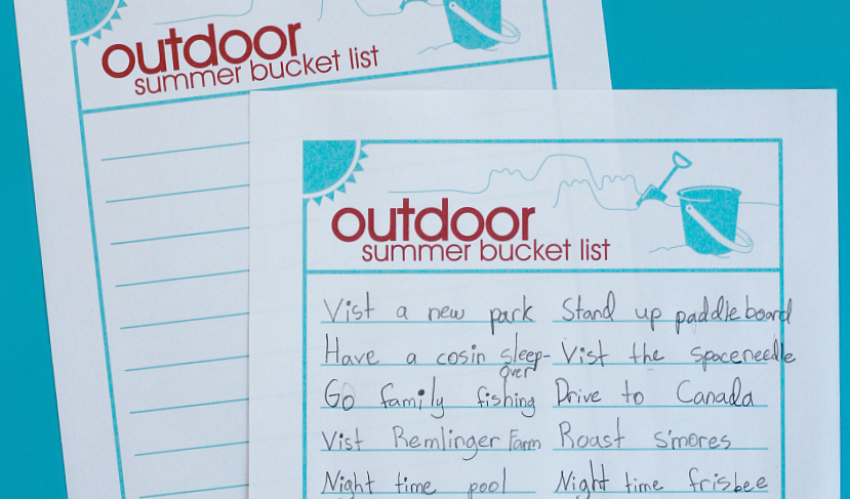 outdoor
summer bucket list
outdoor
summer bucket list
Vist a new park
Have a cosin sleep-
over
Go family fishing
Vist Remlinger Farm
Night time pool
Stand up paddleboard
Vist the spaceneedle
Drive to Canada
Roast s'mores
Night time frisbee